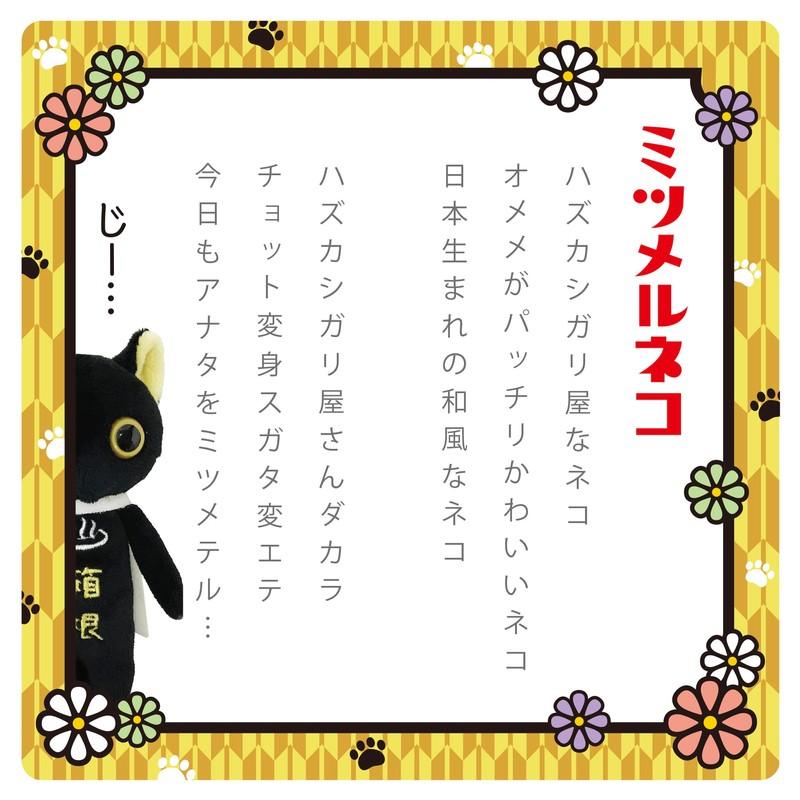 ミツメルネコ
ハズカシガリ屋なネコ
オメメがパッチリかわいいネコ
日本生まれの和風なネコ
ハズカシガリ屋さんダカラ
チョット変身スガタ変エテ
今日もアナタをミツメテル…
じー…
箱根